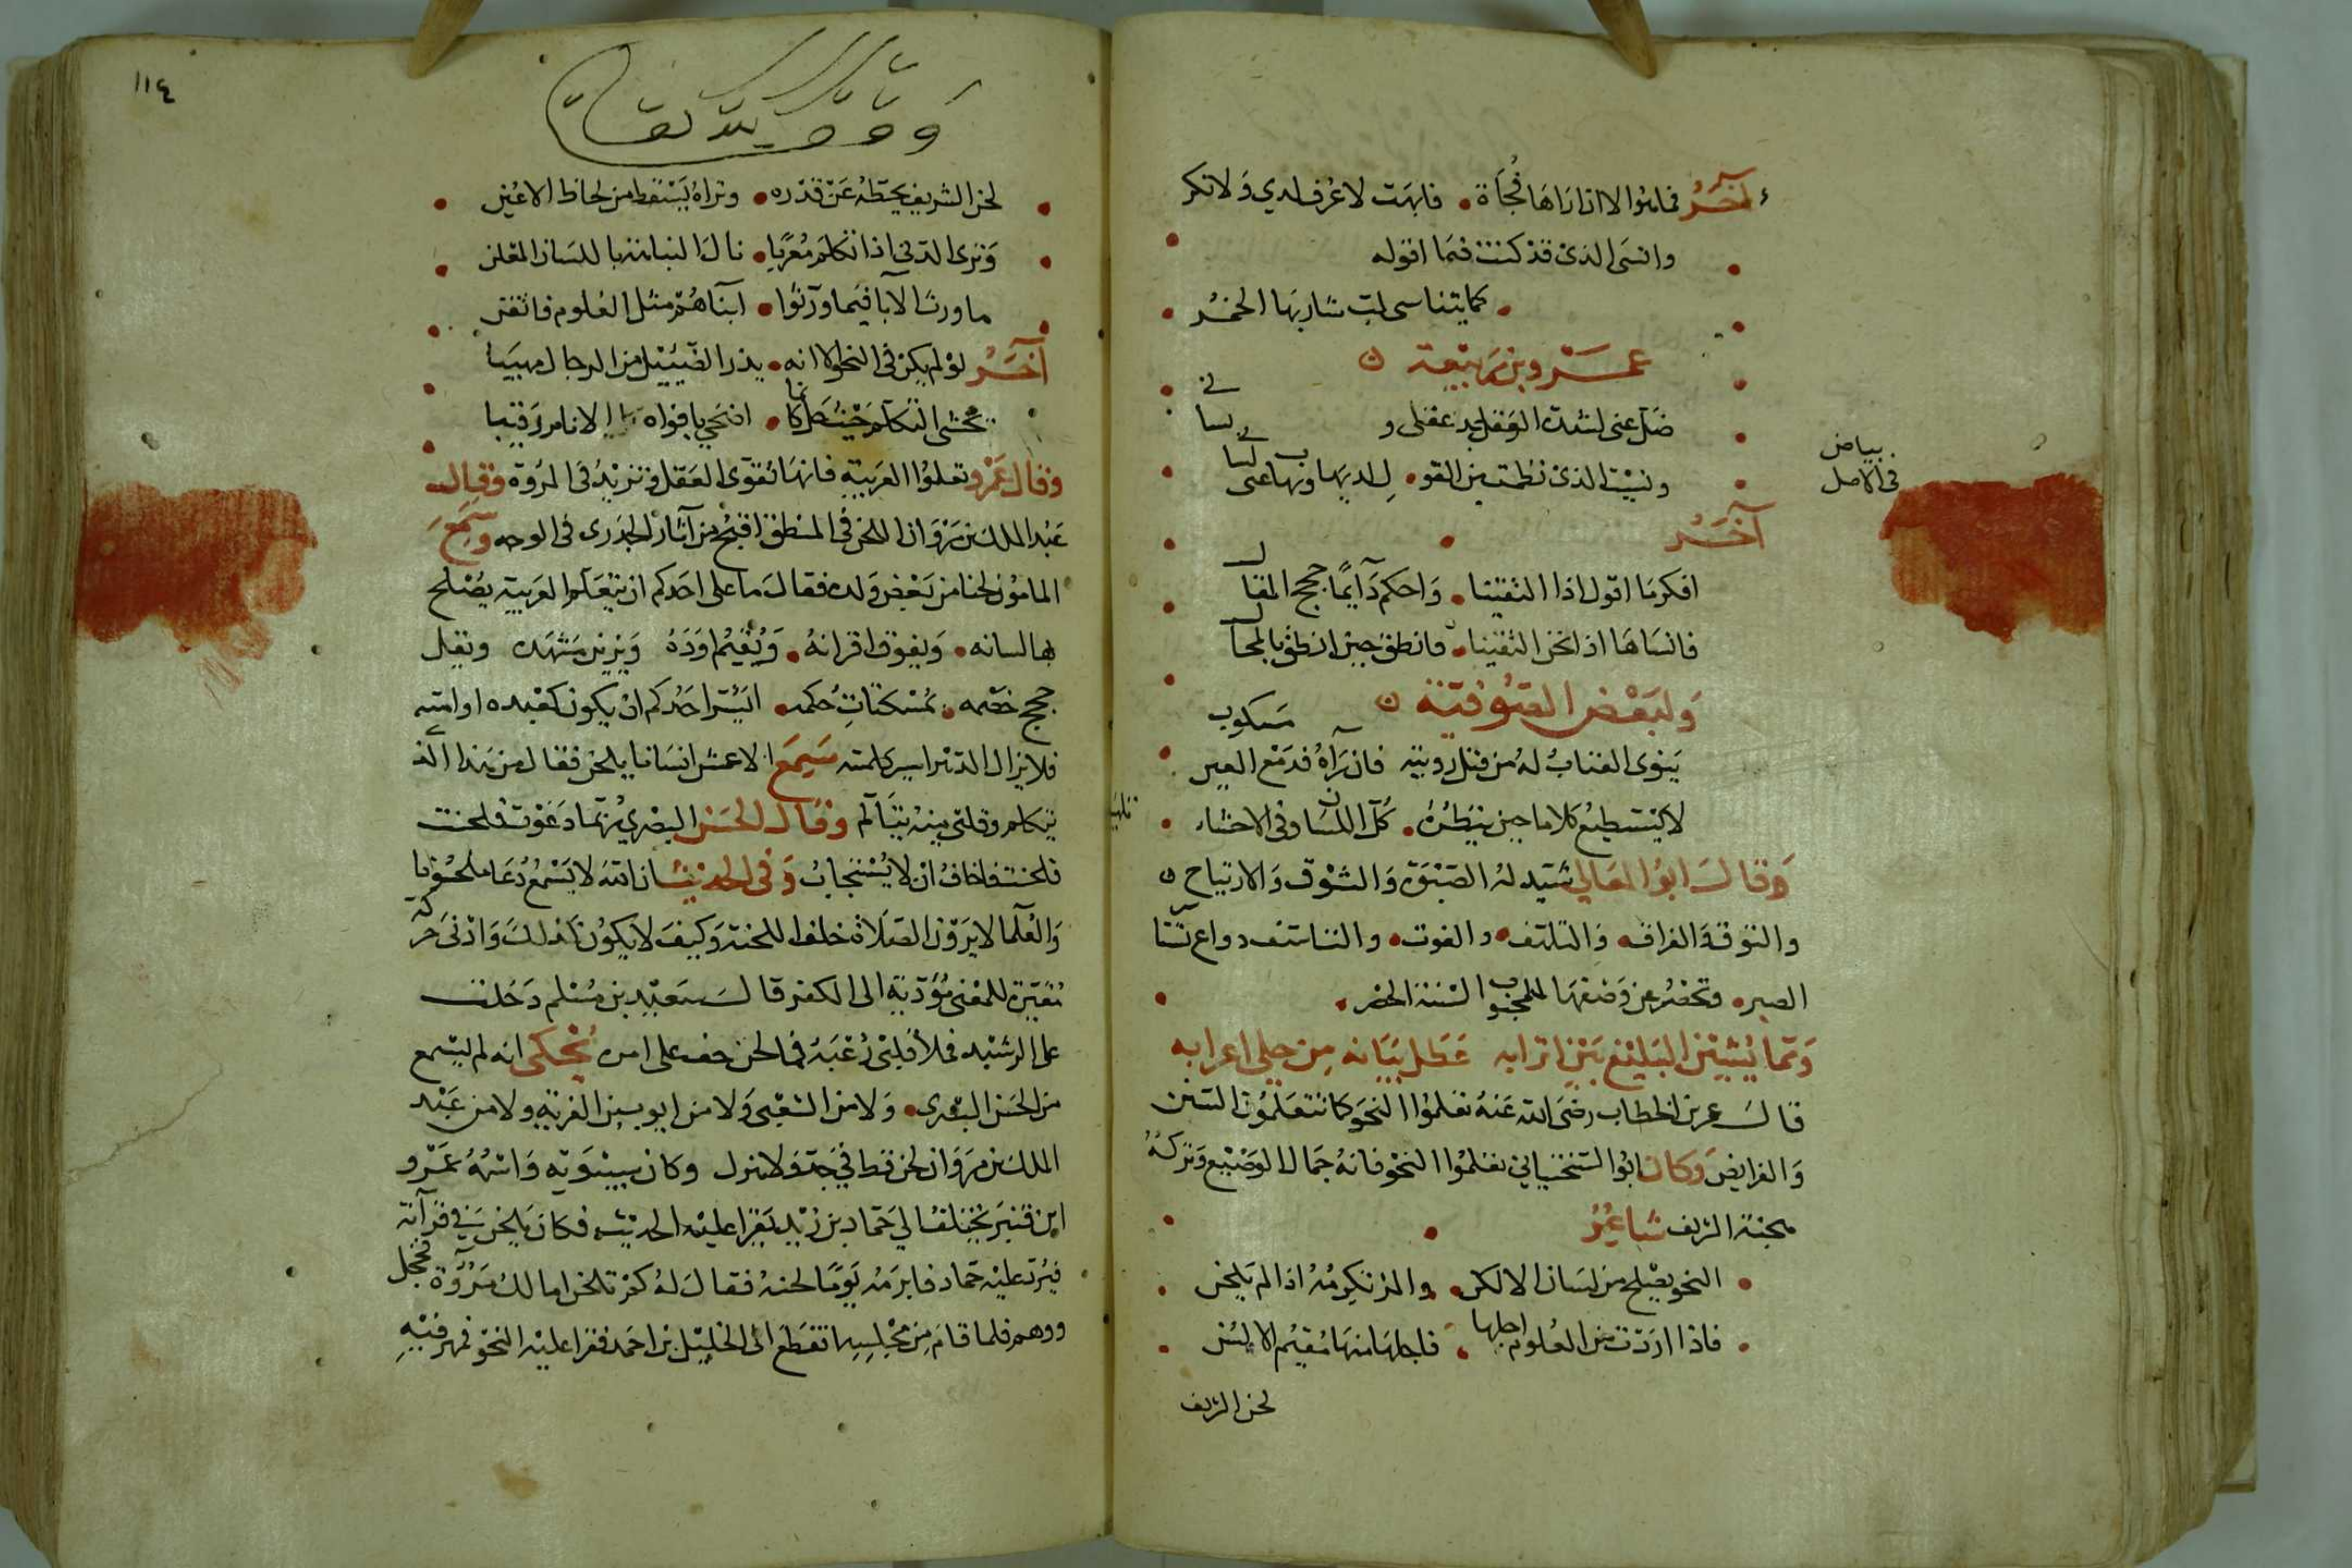 آخر فما هو الا ان اراها فجأة • فابهت لا عرف لدي ولا نكر
وانسى الذى قد كنت فيما اقوله
• كما يتناسى لب شاربها الخمر
عمرو بن ربيعة
ضل عنى لشدة الوجد عقلى و لسانى
ونسيت الذى نظمت من القو • ل لديها وبها عى لسانى
بياض
فى الاصل
آخر
افكر ما اقول اذا التقينا • واحكم دآيما حجج المقال
فانساها اذا نحن التقينا • فانطق حين انطق بالمحال
ولبعض الصوفية
ينوى العتاب له من قبل رويته فان رآه فدمع العين مسكوب
لا يستطيع كلاما حين ينظره • كل اللسان وفى الاحشاء
وقال ابو المعالي شيد له الصبوة والشوق والارتياح
والتوقة والفراق والتلهف • والفوت • والتاسف دواع
الصبر • وتحضر عن وصفها للمحبوب السنة الحضر •
ومما يشين البليغ بين اترابه عطل بيانه من حلى اعرابه
قال عمر بن الخطاب رضى الله عنه تعلموا النحو كما تتعلمون السنن
والفرايض وكان ابو السختيانى تعلموا النحو فانه جمال الوضيع وتركه
هجنة الشريف شاعر
النحو يصلح من لسان الالكن • والمرء تكرمه اذا لم يلحن
فاذا اردت من العلوم اجلها • فاجلها منها مقيم الالسن
لحن الشريف
١١٤
وقف لله تعالى
لحن الشريف يحطه عن قدره • وتراه يسقط من لحاظ الاعين
وترى الدنى اذا تكلم معربا • نال النباهة باللسان المعلن
ما ورث الآبا فيما ورثوا • ابناهم مثل العلوم فاتقن
آخر لو لم يكن فى النحو الا انه • يذر الضييل من الرجال مهيبا
يخشى التكلم حيث كانما • اضحى بافواه الانام رقيبا
وقال عمر وتعلموا العربية فانها تقوى العقل وتزيد فى المروة وقال
عبد الملك بن مروان اللحن فى المنطق اقبح من آثار الجدرى فى الوجه وسمع
المامون لحنا من بعض ولده فقال ما على احدكم ان يتعلم العربية يصلح
بها لسانه • ويفوق اقرانه • ويقيم اوده ويزين مشهده ويقل
حجج خصمه • بمسكتات حكمه • ايسر احدكم ان يكون كعبده او امته
فلا يزال الدهر اسير كلمته سمع الاعمش انسانا يلحن فقال من هذا الذى
يتكلم وقلبى منه يتالم وقال الحسن البصري ربما دعوت فلحنت
فلحنت فاخاف ان لا يستجاب وفى الحديث ان الله لا يسمع دعا ملحونا
والعلما لا يرون الصلاة خلف اللحنة وكيف لا يكون كذلك وادنى حركة
مغيرة للمعنى مؤدية الى الكفر قال سعيد بن مسلم دخلت
على الرشيد فملأ قلبى رعبة فلما لحن خف على امره يحكى انه لم يسمع
من الحسن البصرى • ولا من الشعبى ولا من ايوب بن القرية ولا من عبد
الملك بن مروان لحن قط في جد ولا هزل وكان سيبويه واسمه عمرو
ابن قنبر يختلف الى حماد بن زيد يقرا عليه الحديث فكان يلحن في قرآته
فيرد عليه حماد فابرمه يوما لحنه فقال له كم تلحن اما لك مروة فخجل
ووهم فلما قام من مجلسه انقطع الى الخليل بن احمد فقرا عليه النحو فمهر فيه